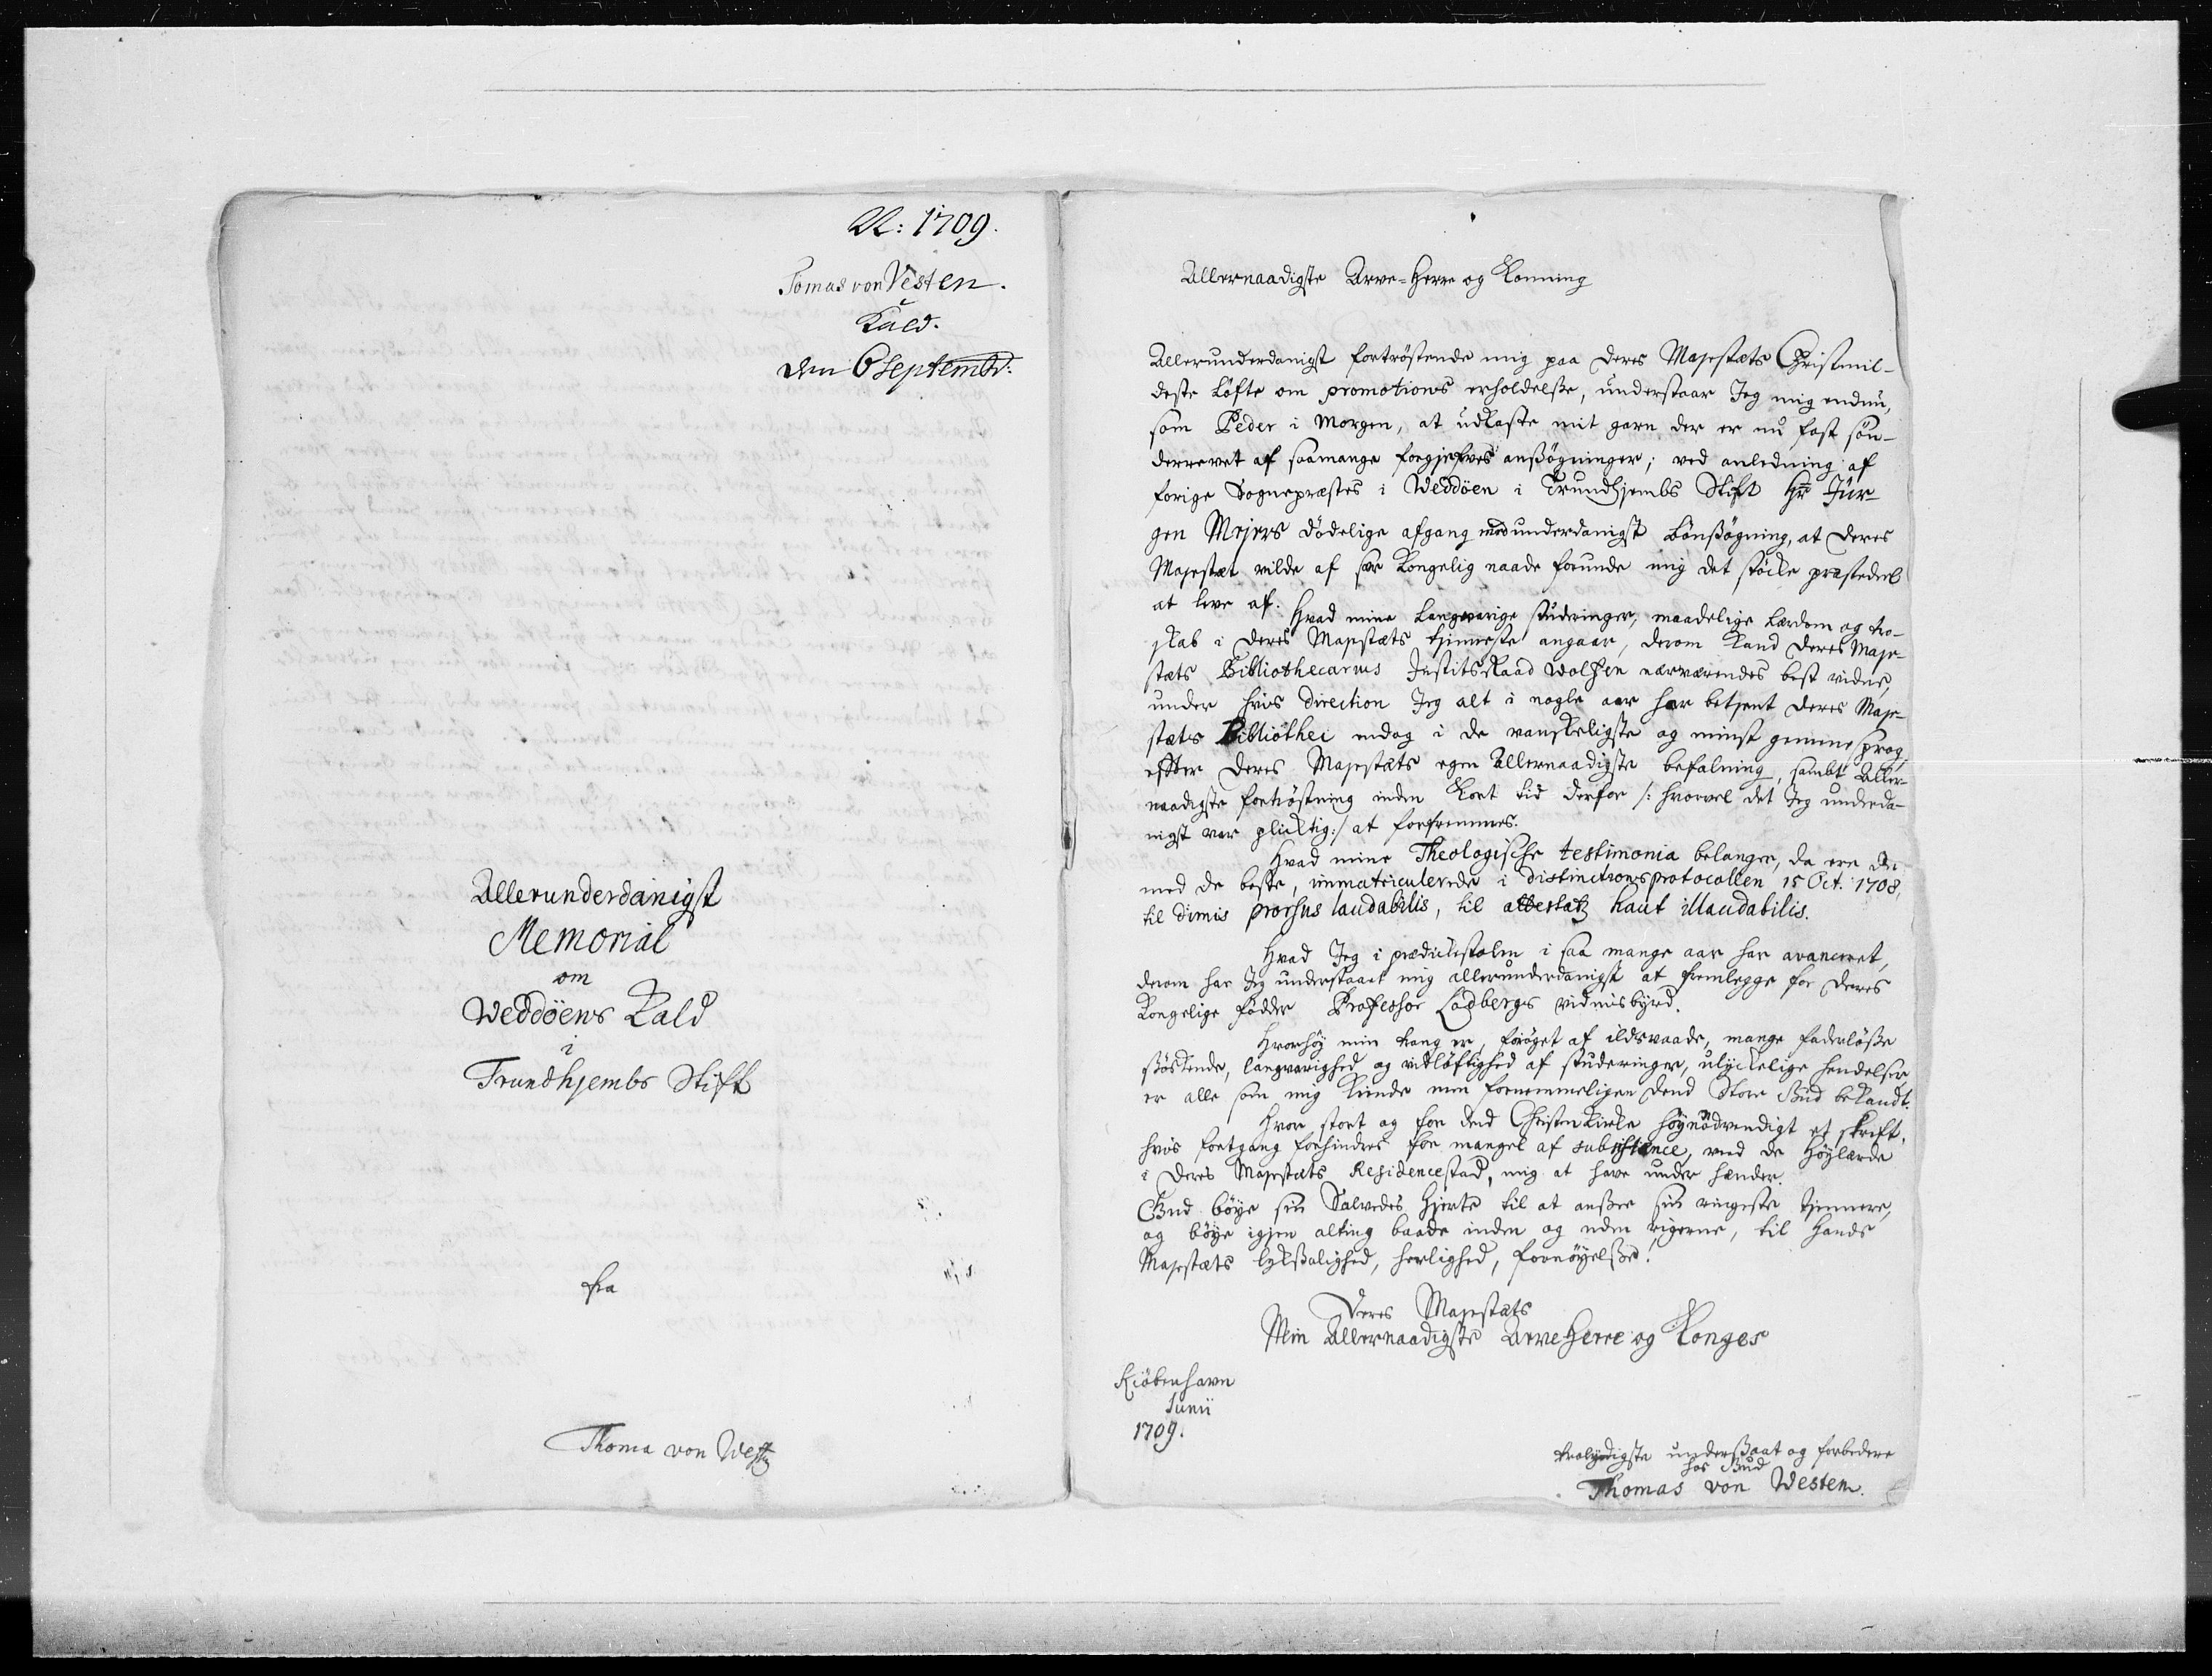 A: 1709.
Tomas von Vesten.
Kald.
den 6 Septembr:
Allerunderdanigst
Memorial
om
Weddöens Kald
i
Trundhjembs Stift
fra
Thoma von Westen
Allernaadigste Arve-Herre og Konning
Allerunderdanigst fortröstende mig paa Deres Majestæts Christmil-
deste Löfte om promotions erholdelsse, understaar Jeg mig endnu,
som Peder i Morgen, at udkaste mit garn der er nu fast sön-
derrevet af saamange forgjefves anssögninger; ved anledning af
forige Sognepræstes i Weddöen i Trundhjembs Stift Hr Jür-
gen Mejers dödelige afgang med underdanigst Bönssögning, at Deres
Majestæt vilde af sær Kongelig naade forunde mig det stöcke præstedeel
at leve af. Hvad mine langvarige studeringer, maadelige Lærdom og tro-
skab i Deres Majestæts tjenneste angaar, derom kand Deres Maje-
stæts Bibliothecarius Justitsraad Wolfen nærværendes best vidne,
under hvis direction Jeg alt i nogle aar har betjent Deres Maje-
stæts Bibliothec endog i de vanskeligste og minst gemene sprog,
efter Deres Majestæts egen Allernaadigste befalning, sambt Aller-
naadigste fortröstning inden kort tid derfor /: hvorvel det Jeg underda-
nigst var plicktig :/ at forfremmes.
Hvad mine Theologische testimonia belanger, da ere de
med de beste, immatriculerede i distinctionsprotocollen 15 Oct. 1708,
til dimis prorsus laudabilis, til attestatz haut illaudabilis.
Hvad Jeg i prædickestolen i saa mange aar har avanceret,
derom har Jeg understaaet mig allerunderdanigst at fremlegge for Deres
Kongelige födder Professor Lodbergs vidnisbyrd.
Hvorhöy min trang er, foröget af ildsvaade, mange faderlösse
ssöskende, langvarighed og vidtlöftighed af studeringer, ulyckelige hendelser
er alle som mig kiende men fornemmeligen dend Store Gud bekandt.
Hvor stort og for dend Christen kircke höynödvendigt et skrift,
hvis fortgang forhindres for mangel af subsistance, veed de Höylærde
i Deres Majestæts Residencestad, mig at have under hænder.
Gud böye sin Salvedes Hjerte til at ansee sin ringeste tjennere,
og böye igjen alting baade inden og uden rigerne, til Hands
Majestæts lykssalighed, herlighed, fornöyelsse!
Deres Majestæts
Min Allernaadigste Arve Herre og Konges
Kiöbenhavn
Junii
1709.
troelydigste underssaat og forbedere
hos Gud
Thomas von Westen.